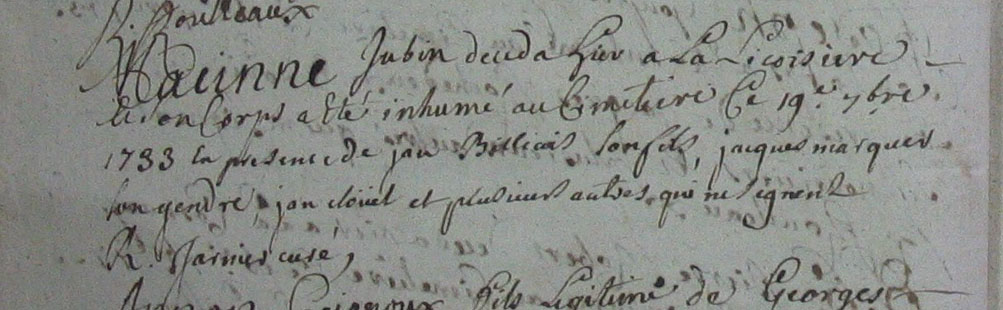 R. Poulteaux
Maturinne Jubin deceda hier a La Licoisiere
et son Corps a Eté inhumé au Cimetiere Ce 19e 7bre
1733 En presence de jan Billiais son fils, jacques marquer
son gendre, jan cloüet et plusieurs autres qui ne signent
R. Jarnier curé,
fils Legitime de Georges